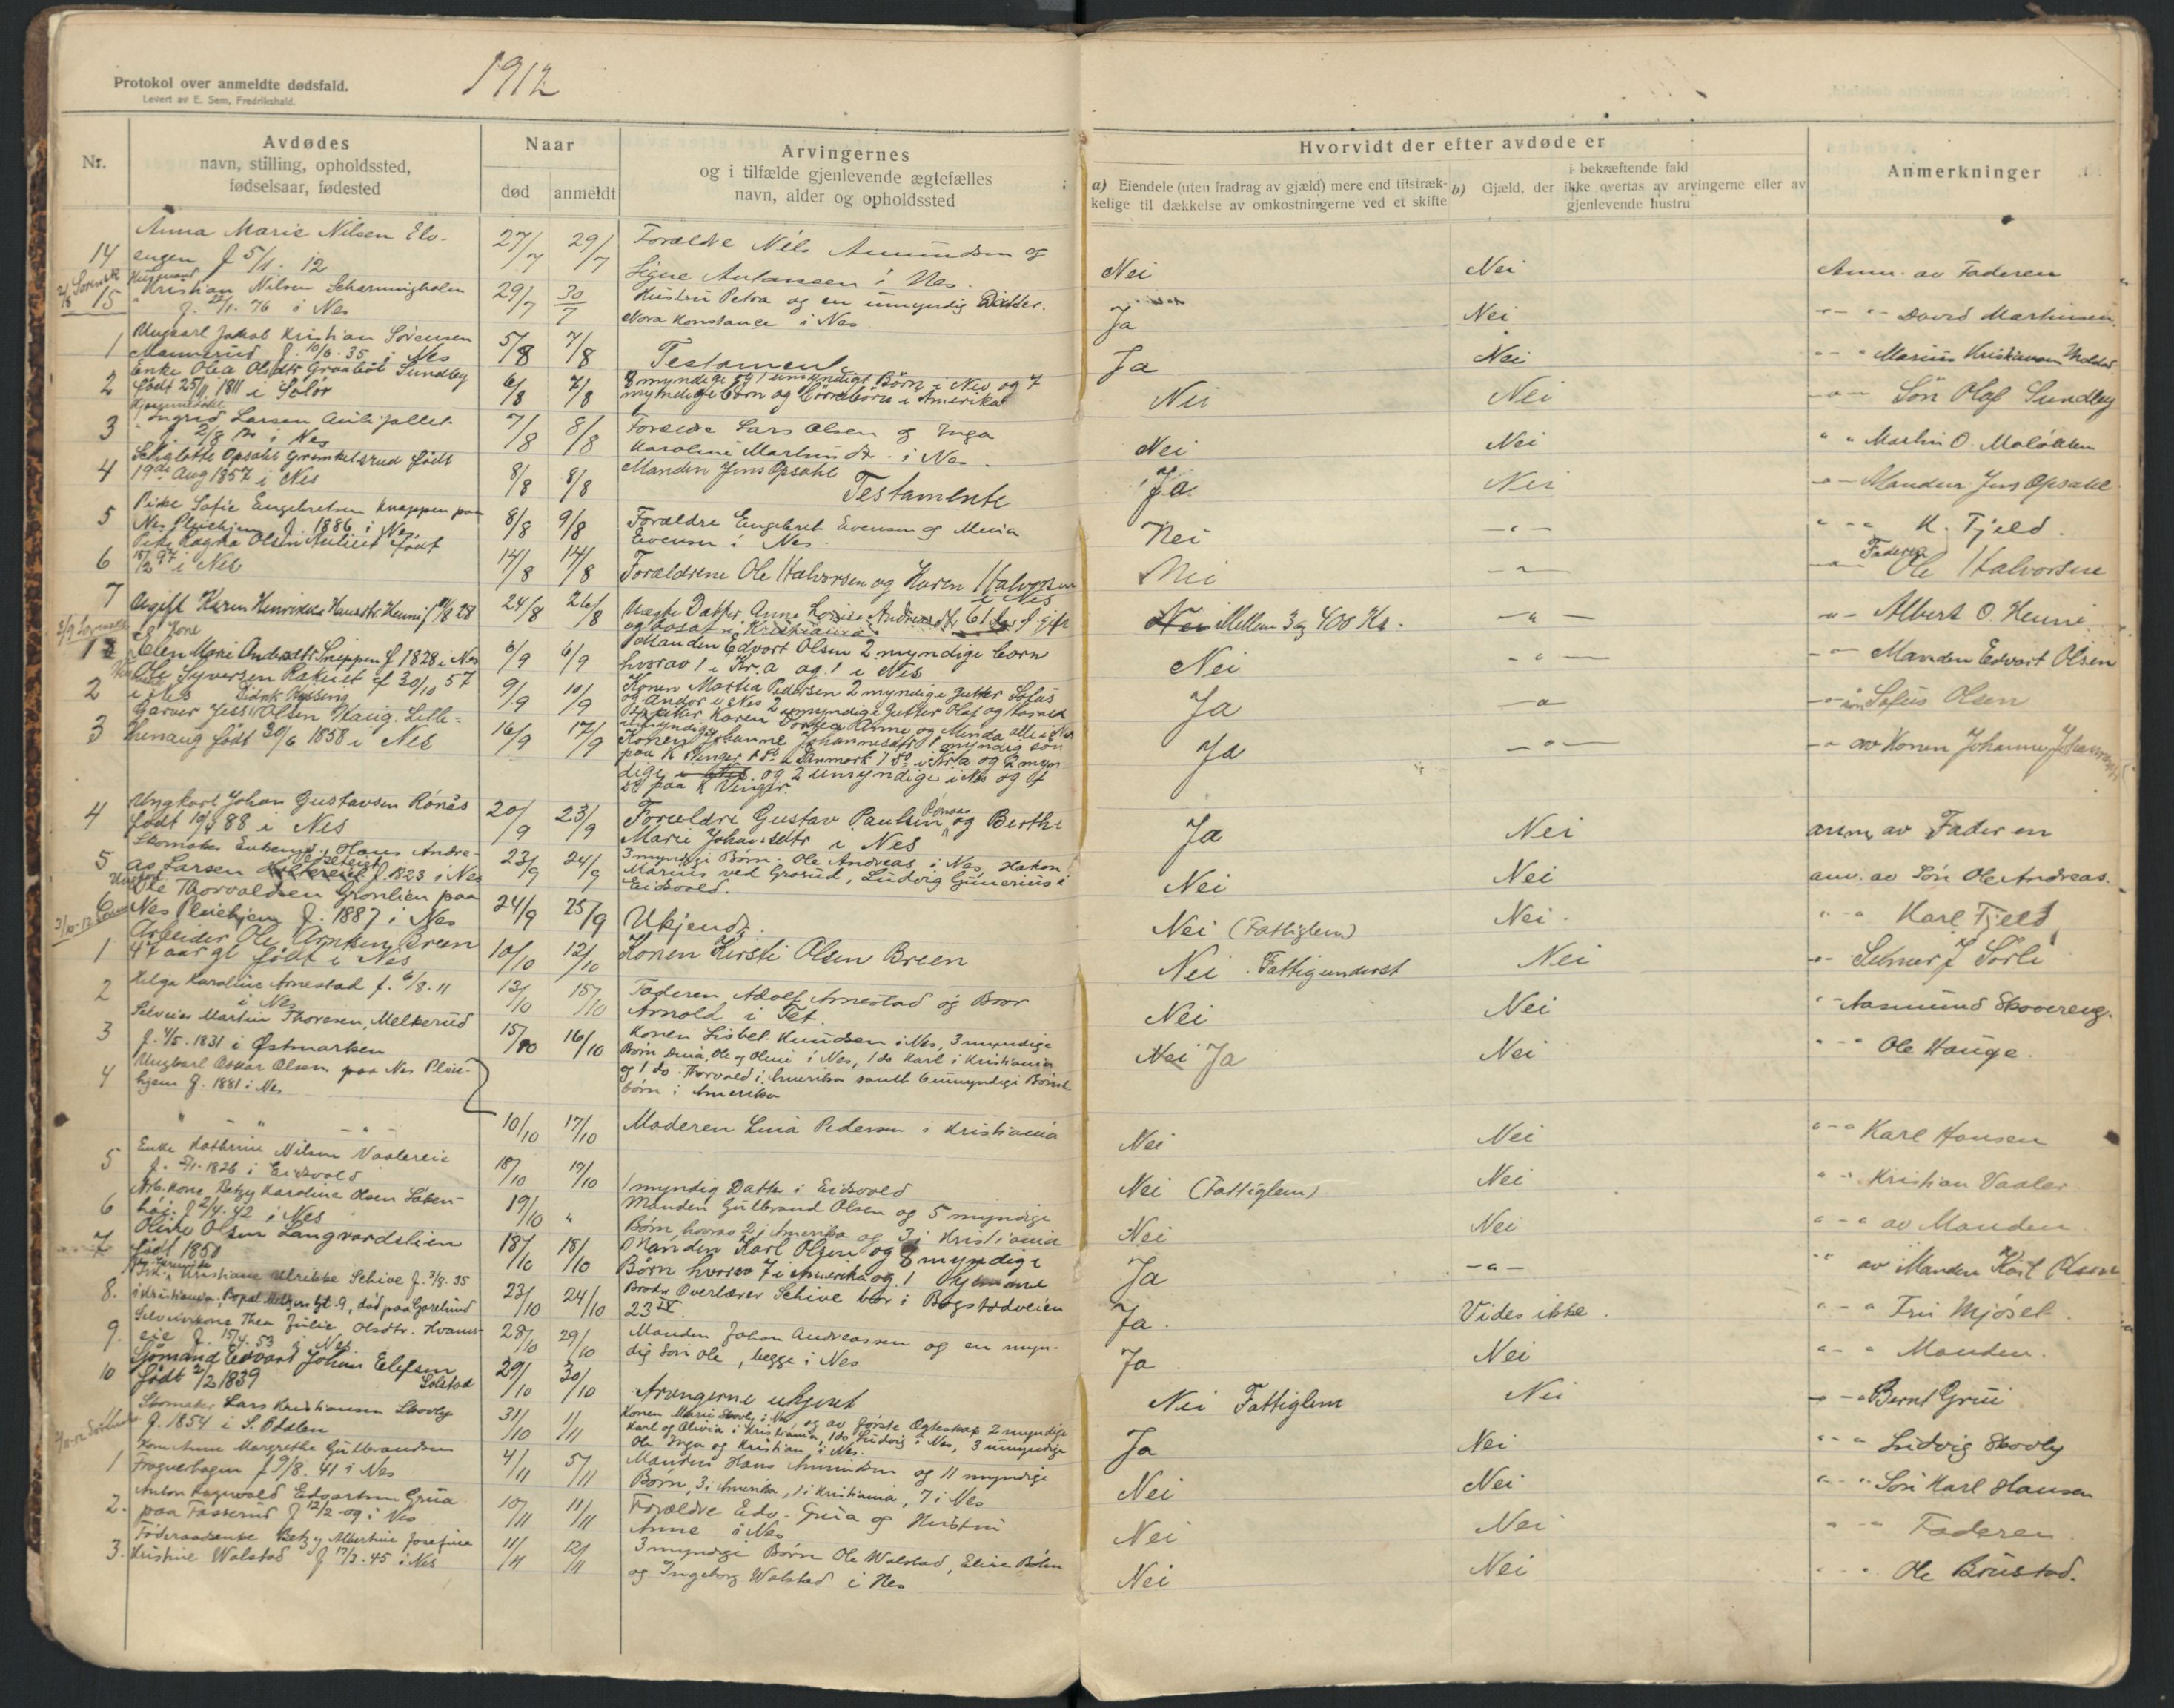 1912
Protokol over anmeldte dødsfald.
Levert av E. Sem, Fredrikshald.
Nr.
Avdødes
navn, stilling, opholdssted,
fødselsaar, fødested
Naar
død
anmeldt
Arvingernes
og i tilfælde gjenlevende ægtefælles
navn, alder og opholdssted
Hvorvidt der efter avdøde er
a) Eiendele (uten fradrag av gjæld) mere end tilstræk-
kelige til dækkelse av omkostningerne ved et skifte
i bekræftende fald
b) Gjæld, der ikke overtas av arvingerne eller av
gjenlevende hustru
Anmerkninger
14
Anna Marie Nilsen Elv-
engen f 5/1. 12
27/7
29/7
Forældre Nils Amundsen og
Signe Antonsen i Nes.
Nei
Nei
Anm. av Faderen
15
Kristian Nilsen
f. 22/1. 76 i Nes
29/7
30/7
Hustru Petra og en umyndig Datter.
Nora Konstance i Nes
Ja
Nei
" " David Martinsen.
1
Ungkarl Jakob Kristian Sørensen
Mannerud f. 10/6. 35 i Nes
5/8
7/8
Testament
Ja
Nei
" " Marius Kristiansen
2
Enke Olea Olsdtr Sundby
født 25/11 1811 i Solør
6/8
7/8
8 myndige og 1 umyndigt Børn i Nes og 7
myndige børn og børnebørn i Amerika
Nei
Nei
-"- Søn Olaf Sundby
3
Ingrid Larsen
2/8 12 i Nes
7/8
8/8
Forældre Lars Olsen og Inga
Karoline Martinsdtr. i Nes.
Nei
Nei
" " Martin O.
4
Opsahl Grimkelsrud født
19de Aug 1857 i Nes
8/8
8/8
Manden Jens Opsahl
Testamente
Ja
Nei
-"- Manden Jens Opsahl
5
Pike Sofie Engebretsen Knappen paa
Nes Pleiehjem f. 1886 i Nes
8/8
9/8
Forældre Engebret Evensen og
Evensen i Nes.
Nei
-"-
" - " K. Fjeld.
6
Pike Ragna Olsen født
15/2 97 i Nes
14/8
14/8
Forældrene Ole Halvorsen og Karen Halvorsen
i Nes
Nei
-"-
-"- Faderen Ole Halvorsen
7
Ugift Karen Henrikka Hansdtr Henni f
24/8
26/8
Næste Datter Anna Andreasdtr 61 Aar gift
og bosat i Kristiania
Nei Mellem 3 og 400 Kr.
-"-
-"- Albert O. Henni
1
Kone
Elen Marie Andersdtr Sneppen f 1828 i Nes
6/9
6/9
Manden Edvart Olsen 2 myndige børn
hvorav 1 i Kr.a og 1 i Nes
Nei
-"-
-"- Manden Edvart Olsen
2
Ole Syversen Rakeiet f 30/10 57
i Nes
9/9
10/9
Konen Martia Pedersen 2 myndige Gutter Sofus
og Andor i Nes 2 umyndige Gutter Olaf og Harald
Karen Dorthea Anne og Minda alle i Nes
Ja
-"-
-"- søn Sofus Olsen
3
Garver Jess Olsen Haug. Lille-
henaug født 30/6 1858 i Nes
16/9
17/9
Konen Johanne Johannesdtr 1 myndig søn
paa K Vinger 1 do i Danmark 1 do i Kr.a og 2 myn
dige i Nes. og 2 umyndige i Nes og 1
do paa K Vinger.
Ja
-"-
-"- av Konen Johanne
4
Ungkarl Johan Gustavsen Rønås
født 10/4 88 i Nes
20/9
23/9
Forældre Gustav Paulsen Rønaas og Berthe
Marie Johansdtr i Nes
Ja
Nei
anm, av Faderen
5
Skomaker Enkemd. Hans Andre-
as Larsen f. 1823 i Nes
23/9
24/9
3 myndige Børn: Ole Andreas i Nes, Hakon
Marius ved Grorud, Ludvig Gunerius i
Eidsvold.
Nei
Nei
anm. av Søn Ole Andreas.
6
Ole Thorvaldsen Grønlien paa
Nes Pleiehjem f. 1887 i Nes
24/9
25/9
Ukjendt.
Nei (Fattiglem)
Nei.
" - " Karl Fjeld
1
Arbeider Ole Arnksen Breen
47 aar gl født i Nes
10/10
12/10
Konen Kirsti Olsen Breen
Nei. Fattigunderst
Nei
-"- J Sørli
2
Helga Karoline Arnestad f. 6/8. 11
i Nes
13/10
15/10
Faderen Adolf Arnestad og Bror
Arnold i Fet.
Nei
Nei
" - Aasmund Skovereng.
3
Selveier Martin Thoresen, Melkerud
f. 4/5. 1831 i Østmarken
15/10
16/10
Konen Lisbet Knudsen i Nes, 3 myndige
Børn, Ole og Oline i Nes, 1 do Karl i Kristiania
og 1 do. Thorvald i Amerika samt 6 umyndige Børne
børn i Amerika
Nei Ja
Nei
" " " Ole Hauge.
4
Ungkarl Oskar Olsen paa Nes Pleie-
hjem f. 1881 i Nes
" - " - " -
10/10
17/10
Moderen Lina Pedersen i Kristiania
Nei
Nei
" - " Karl Hansen
5
Enke Kathrine Nilsen Vaalereie
f. 5/11. 1826 i Eidsvold
18/10
19/10
1 myndig Datter i Eidsvold
Nei (Fattiglem)
Nei
" " Kristian Vaaler
6
Arb. kone, Betzy Karoline Olsen
f 2/4. 42 i Nes
19/10
"
Manden Gulbrand Olsen og 5 myndige
Børn, hvorav 2 i Amerika og 3 i Kristiania
Nei
Nei
" - " av Manden
7
Oline Olsen Langvardslien
født 1850
18/10
18/10
Manden Karl Olsen og 8 myndige
Børn hvorav 7 i Amerika og 1 hjemme
Ja
-"-
" " av Manden Karl Olsen
8.
Kristiane Ulrikke Schive f. 3/8. 35
i Kristiania, gt. 9, død paa
23/10
24/10
Broder Overlærer Schive bor i Bogstadveien
23 IV.
Ja.
Vides ikke.
" - " Fru Mjøset.
9.
Selveierkone Thea Julie Olsdtr. Hvams-
eie f. 15/4. 53 i Nes
28/10
29/10
Manden Johan Andreassen og en myn-
dig Søn Ole, begge i Nes
Ja
Nei
" - " Manden.
10
Sjømand Edvart Johan Elefsen
født 2/2 1839 Solstad
29/10
30/10
Arvingerne ukjent
Nei Fattiglem
Nei
-"- Bernt Grui
11
Skomaker Lars Kristiansen Skovly
f. 1854 i S. Odalen
31/10
1/11
Konen Marie Skovly i Nes, og av første Ægteskap 2 myndige
Karl og Olivia i Kristiania, 1 do Ludvig i Nes, 3 umyndige
Ole Inga og Kristian, i Nes.
Ja
Nei
" - " Ludvig Skovly
1
Kone Anne Margrethe Gulbrandsen
Fragnerhagen f 9/8. 41 i Nes
4/11
5/11
Manden Hans Amundsen og 11 myndige
Børn, 3 i Amerika, 1 i Kristiania, 7 i Nes
Nei
Nei
" - " Søn Karl Hansen
2.
Anton Ragnvald Edvartsen Grua
paa Fosserud f 12/2 -09 i Nes
10/11
11/11
Forældre Edv. Grua og Hustru
Anne i Nes
Nei
Nei
" - " Faderen.
3.
Føderaadsenke Betzy Albertine Josefine
Kristine Wolstad f 17/3. 45 i Nes
11/11
12/11
3 myndige Børn Ole Wolstad, Elise Bøhn
og Ingeborg Wolstad i Nes
Nei
Nei
" - " Ole Brustad.